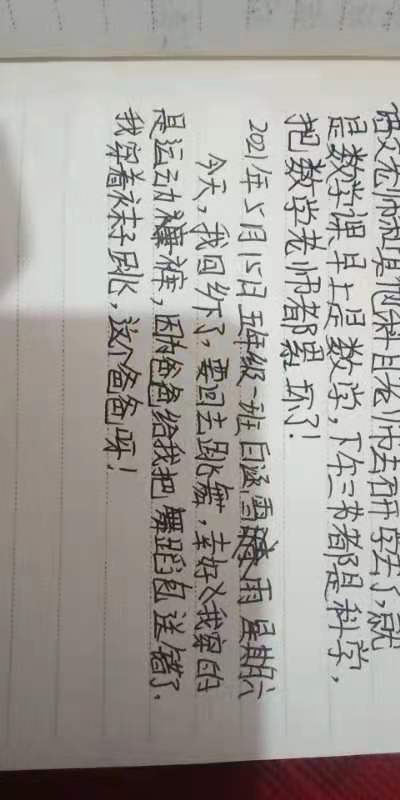 语文老师和其他科目老师去研学去了,就
是数学课,早上是数学,下午三节都是科学,
把数学老师都累坏了!
2021年5月15日五年级一班 白涵雪 雨 星期六
今天,我回乡下了,要回去跳舞,幸好我穿的
是运动裤,因为爸爸给我把舞蹈包送错了.
我穿着袜子跳,这个爸爸呀!